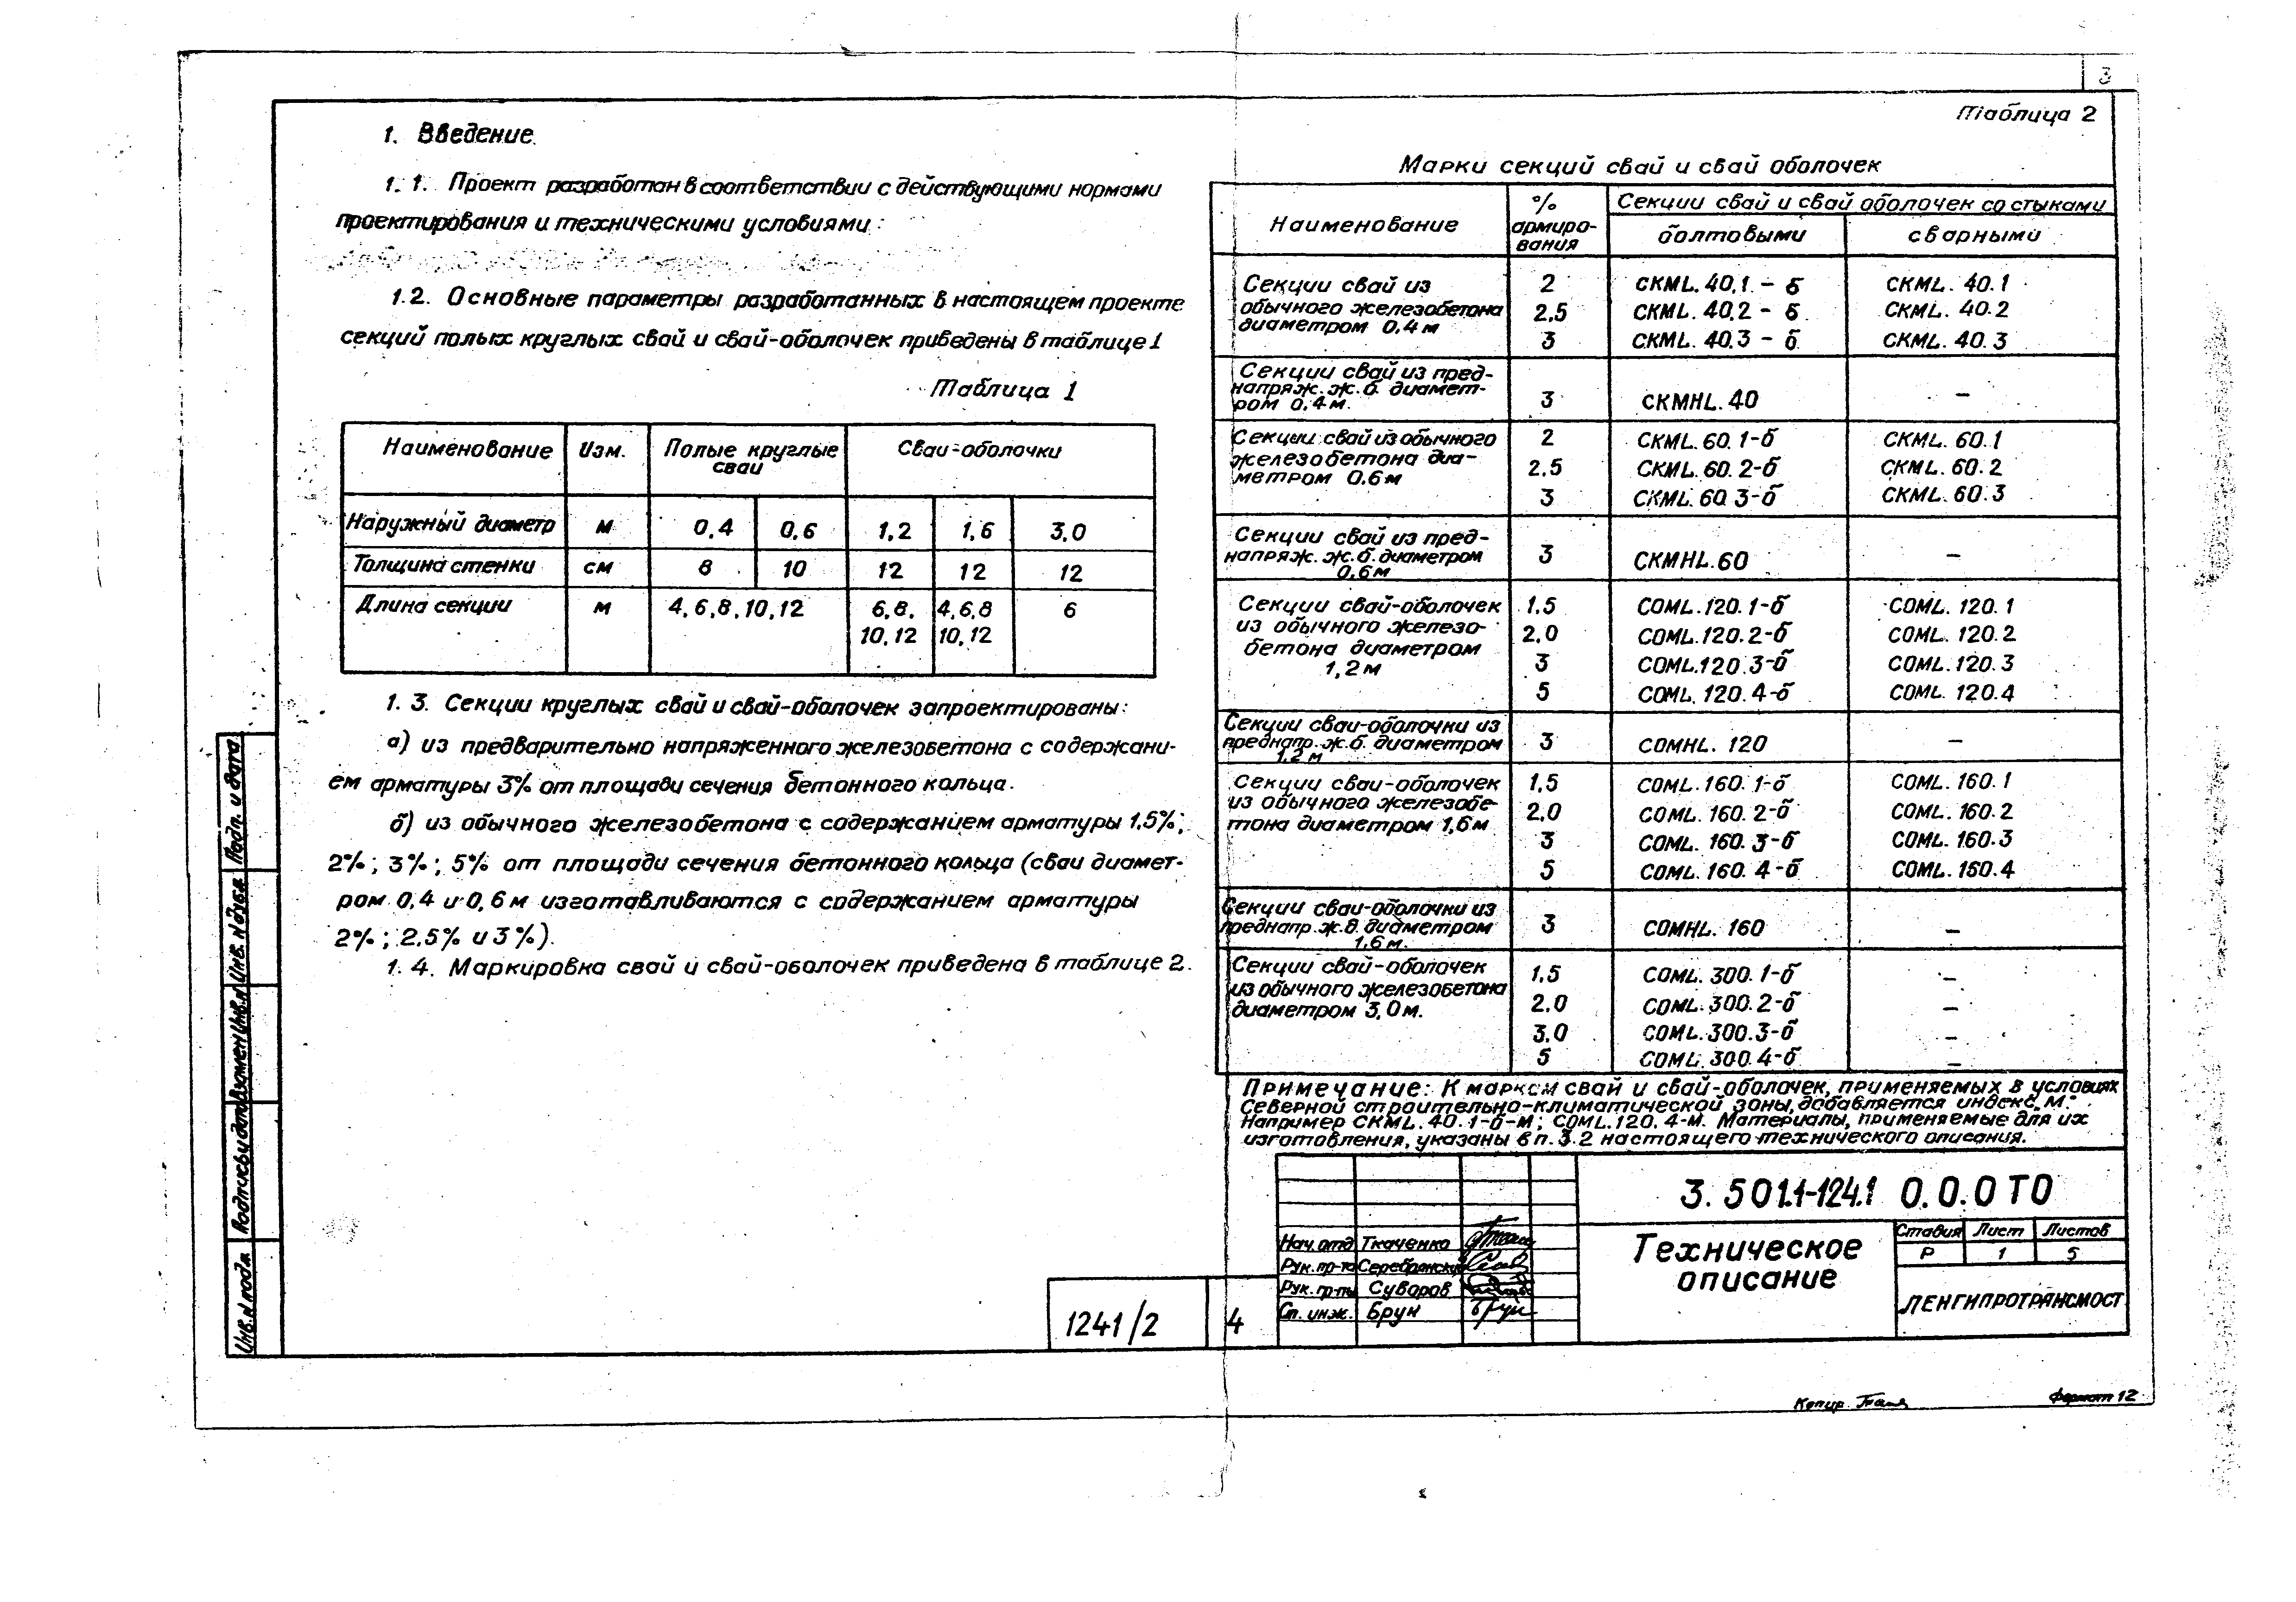 3
1. Введение.
1.1. Проект разработан в соответствии с действующими нормами
проектирования и техническими условиями:
1.2. Основные параметры разработанных в настоящем проекте
секций полых круглых свай и свай-оболочек приведены в таблице 1
Таблица 1
Наименование Изм. Полые круглые Сваи-оболочки
сваи
Наружный диаметр м 0,4 0,6 1,2 1,6 3,0
Толщина стенки см 8 10 12 12 12
Длина секции м 4, 6, 8, 10, 12 6, 8, 4, 6, 8 6
10, 12 10, 12
1.3. Секции круглых свай и свай-оболочек запроектированы:
а) из предварительно напряженного железобетона с содержани-
ем арматуры 3% от площади сечения бетонного кольца.
б) из обычного железобетона с содержанием арматуры 1,5%;
2%; 3%; 5% от площади сечения бетонного кольца (сваи диамет-
ром 0,4 и 0,6 м изготавливаются с содержанием арматуры
2%; 2,5% и 3%).
1.4. Маркировка свай и свай-оболочек приведена в таблице 2.
Таблица 2
Марки секций свай и свай оболочек
Наименование % армиро- вания Секции свай и свай оболочек со стыками
болтовыми сварными
Секции свай из 2 СКМL. 40.1. - б СКМL. 40.1
обычного железобетона 2,5 СКМL. 40.2 - б СКМL. 40.2
диаметром 0,4 м 3 СКМL. 40.3 - б СКМL. 40.3
Секции свай из пред-
напряж. ж.б. диамет-
ром 0,4 м. 3 СКМНL. 40 -
Секции свай из обычного 2 СКМL. 60.1-б СКМL. 60.1
железобетона диа- 2.5 СКМL. 60.2-б СКМL. 60.2
метром 0.6 м 3 СКМL. 60.3-б СКМL. 60.3
Секции свай из пред-
напряж. ж.б. диаметром 3 СКМНL. 60 -
0,6 м
Секции свай-оболочек 1.5 СОМL. 120. 1-б СОМL. 120. 1
из обычного железо- 2,0 СОМL. 120. 2-б СОМL. 120. 2
бетона диаметром 3 СОМL. 120. 3-б СОМL. 120. 3
1,2 м 5 СОМL. 120. 4-б СОМL. 120.4
Секции сваи-оболочки из
преднапр. ж.б. диаметром 3 СОМНL. 120 -
1,2 м
Секции сваи-оболочек 1,5 СОМL. 160. 1-б СОМL. 160. 1
из обычного железобе- 2,0 СОМL. 160. 2-б СОМL. 160. 2
тона диаметром 1,6 м 3 СОМL. 160. 3-б СОМL. 160. 3
5 СОМL. 160. 4-б СОМL. 160. 4
Секции сваи-оболочки из
преднапр. ж.б. диаметром 3 СОМНL. 160 -
1,6 м.
Секции свай-оболочек 1.5 СОМL. 300. 1-б -
из обычного железобетона 2.0 СОМL. 300. 2-б -
диаметром 3,0 м. 3.0 СОМL. 300. 3-б -
5 СОМL. 300. 4-б -
Примечание: К маркам свай и свай-оболочек, применяемых в условиях
Северной строительно-климатической зоны, добавляется индекс „М."
Например СКМL. 40. 1-б-М; СОМL. 120. 4-М. Материалы, применяемые для их
изготовления, указаны в п. 3.2 настоящего технического описания.
3.501.1-124.1 0.0.0 ТО
Нач. отд Ткаченко
Рук. пр-та Серебрянский
Рук. гр-пы Суворов
Ст. инж. Брун
Техническое
описание
Стадия Лист Листов
Р 1 5
ЛЕНГИПРОТРАНСМОСТ
1241/2 4
Копир. Формат 12
Подп. и дата
Инв. N дубл
Взамен Инв. N
Подпись и дата
Инв. N подл